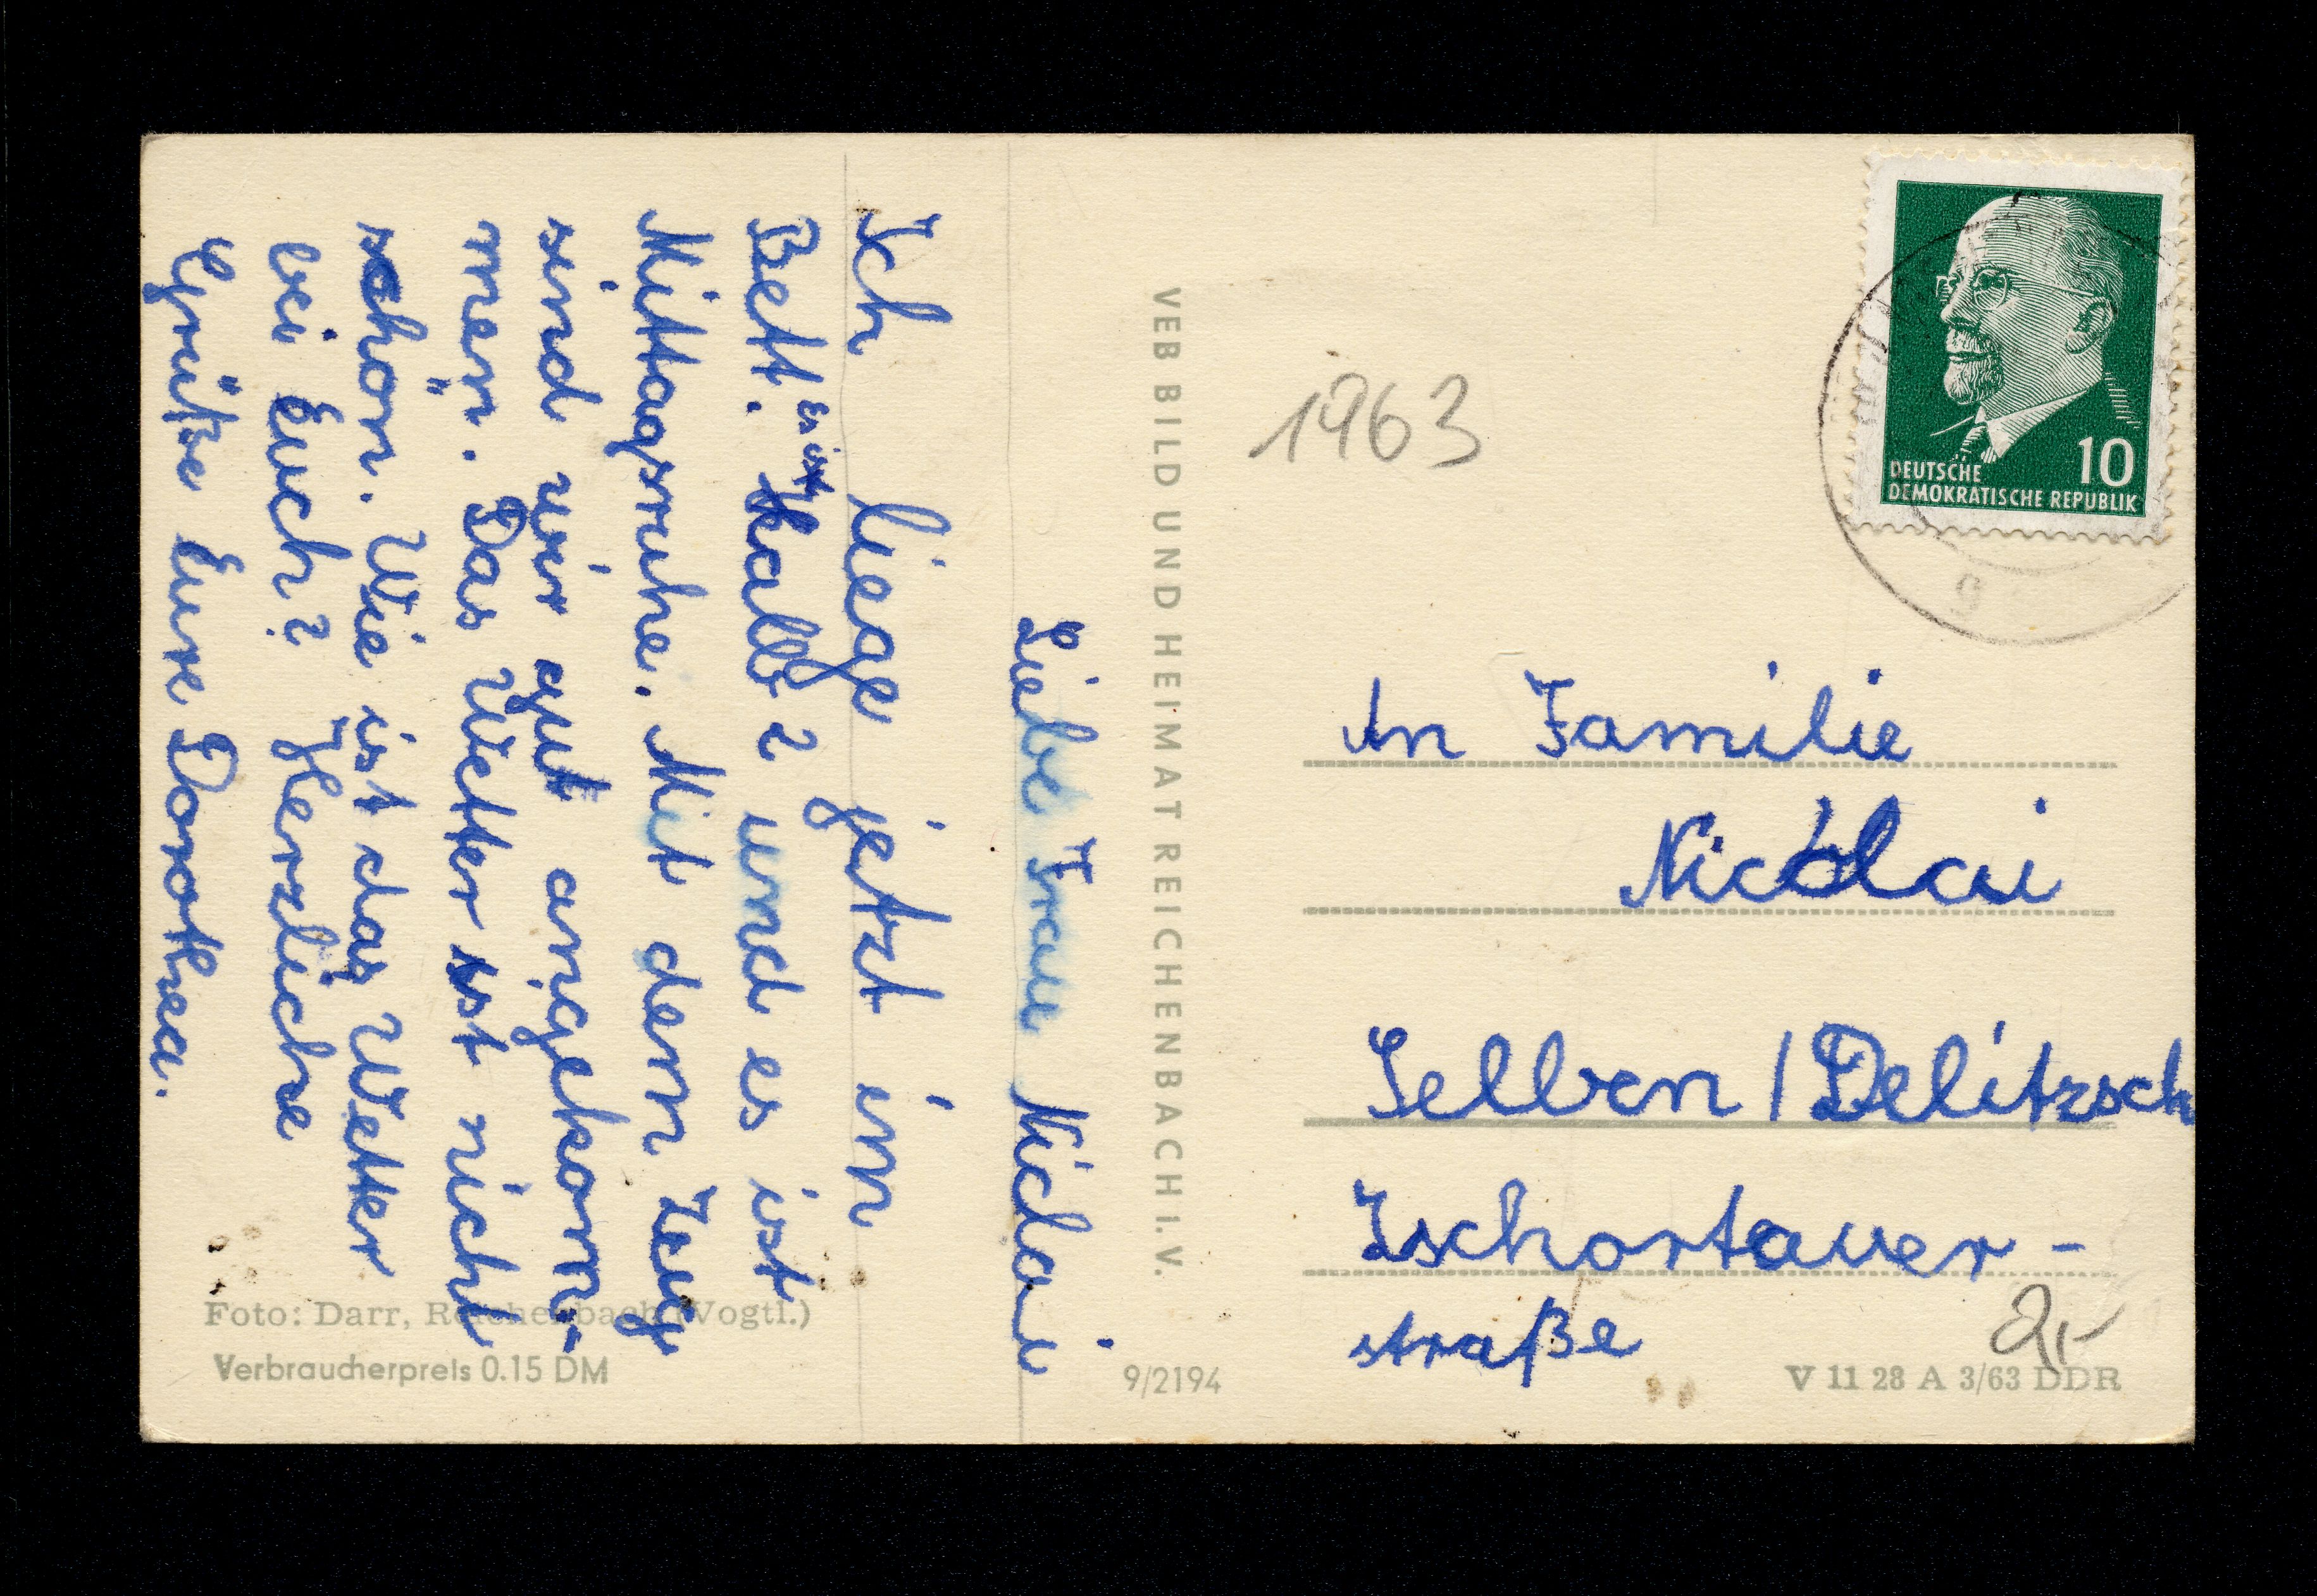 Liebe Frau Niclai
Ich liege jetzt im
Bett. Es ist halb 2 und es ist
Mittagsruhe. Mit dem Zug
sind wir gut angekom-
men. Das Wetter ist nicht
schön. Wie ist das Wetter
bei Euch? Herzliche
Grüße Eure Dorothea.
Foto: Darr, Reichenbach (Vogtl.)
Verbraucherpreis 0.15 DM
VEB BILD UND HEIMAT REICHENBACH I.V.
9/2194
1963
10
DEUTSCHE
DEMOKRATISCHE REPUBLIK
An Familie
Nicolai
Selben / Delitzsch
Zschortauer-
straße
2,-
V 11 28 A 3/63 DDR